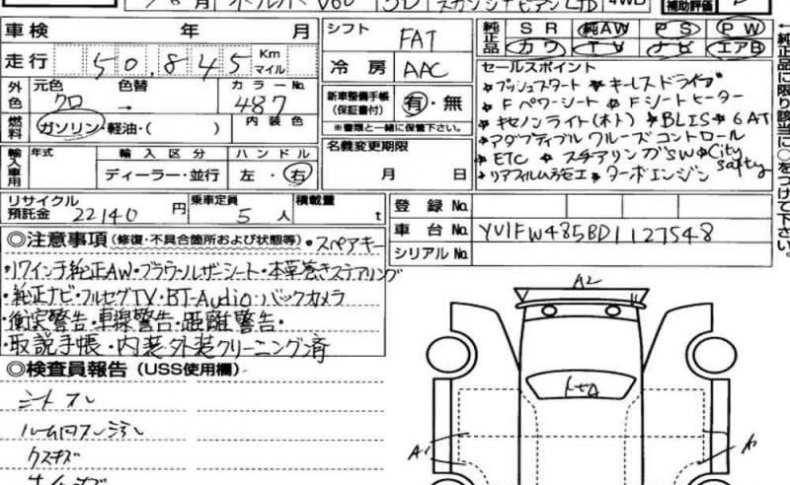 月 ボルボ V60 5D スカンジナビアンLTD 4WD
補助評価
車検 年 月
走行 50,845 Km マイル
外色 元色 クロ → 色替 カラーNo. 487
燃料 ガソリン・軽油・( ) 内装色
輸入車用 年式 輸入区分 ディーラー・並行 ハンドル 左・右
リサイクル預託金 22140 円 乗車定員 5 人 積載量 t
シフト FAT
冷房 AAC
新車整備手帳(保証書付) 有・無
※書類と一緒に保管下さい。
名義変更期限 月 日
純正品 SR 純AW PS PW
カワ TV ナビ エアB
セールスポイント
・プッシュスタート ☆キーレスドライブ
☆Fパワーシート ☆Fシートヒーター
☆キセノンライト(オト) ☆BLIS ☆6AT
☆アダプティブクルーズコントロール
☆ETC ☆ステアリングSW ☆City Safty
☆ターボエンジン
←純正品に限り該当に○をつけて下さい。
登録No.
車台No. YV1FW485BD1127548
シリアルNo.
◎注意事項(修復・不具合箇所および状態等)・スペアキー
・17インチ純正AW・ブラウンレザーシート・本革巻きステアリング
・純正ナビ・フルセグTV・BT-Audio・バックカメラ
・衝突警告・車線警告・距離警告・
・取説手帳・内装・外装クリーニング済
◎検査員報告(USS使用欄)
シートスレ
ルーム内スレ汚れ
クスキズ
A2
A1